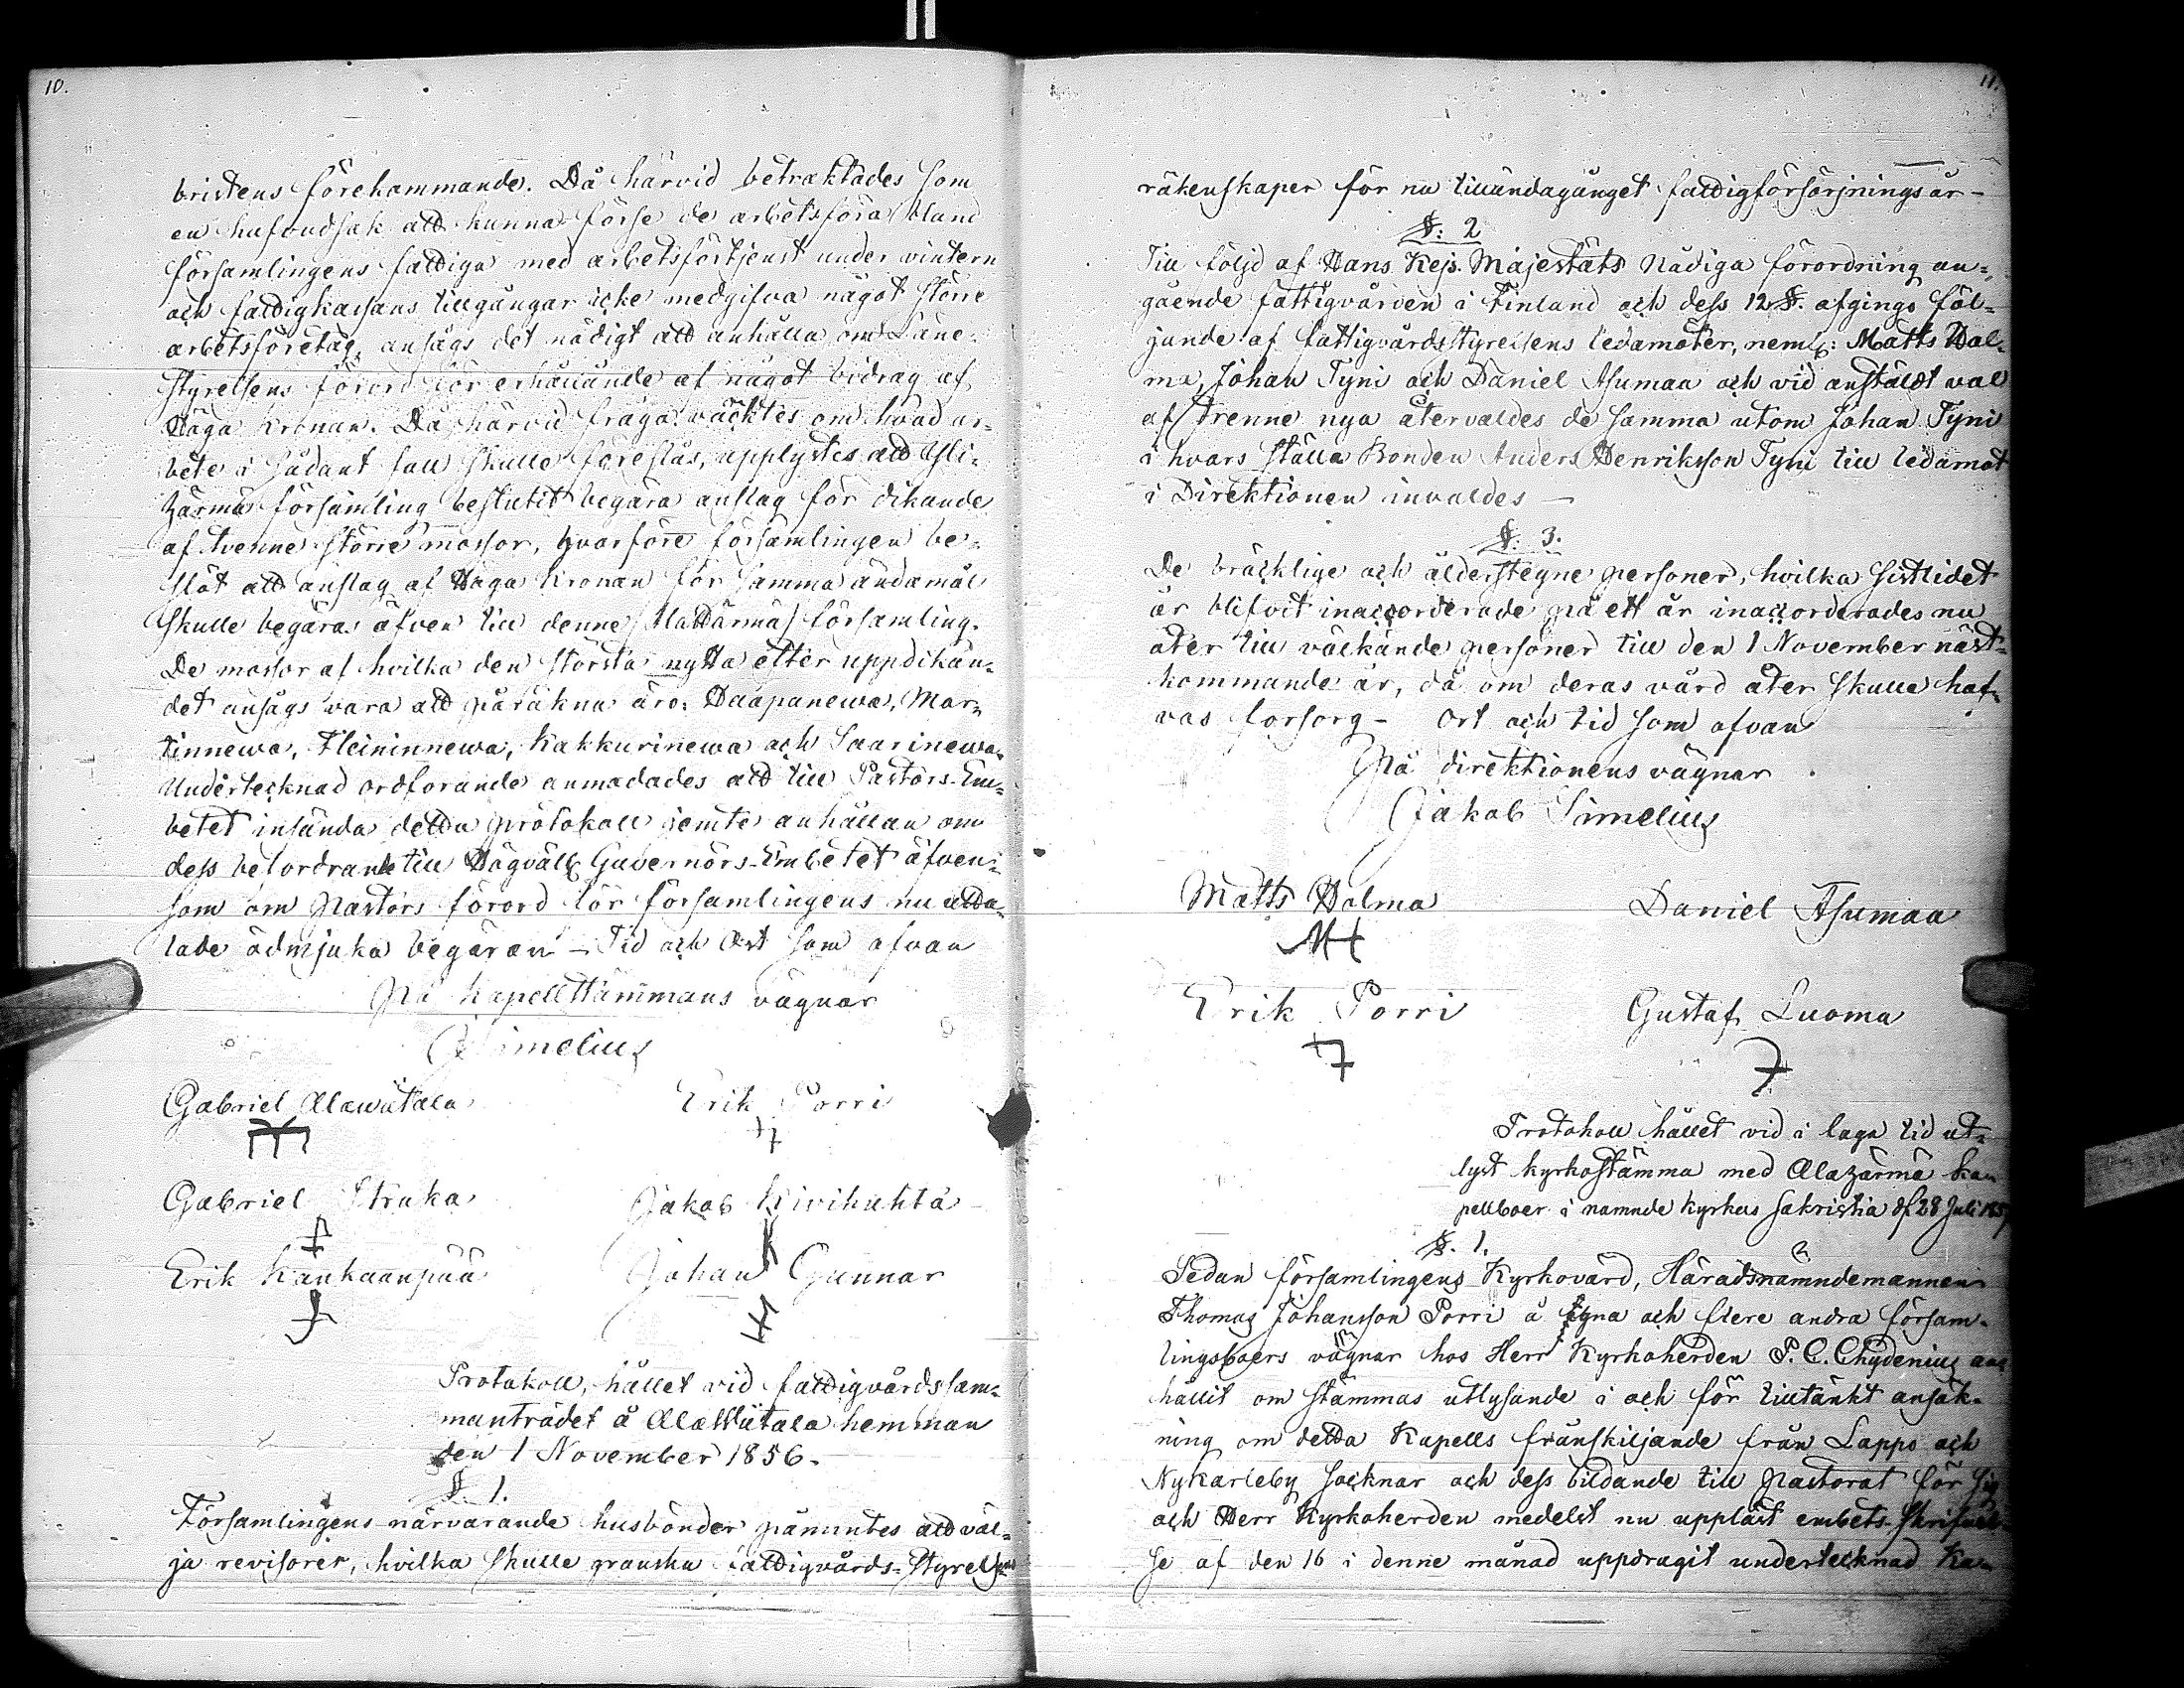 10.
bristens förekammande. Då härvid betraktades som
en hufvudsak att kunna förse de arbetsföra bland
församlingens fattiga med arbetsförtjenst under vintern
och fattigkassans tillgångar icke medgifva något större
arbetsföretag, ansågs det nödigt att anhålla om Läne-
styrelsens förord för erhållande af något bidrag af
Höga Kronan. Då härvid fråga väcktes om hvad ar-
bete i sådant fall skulle föreslås, upplystes att Yli-
härmä församling beslutit begära anslag för dikande
af tvenne större mossor, hvarföre församlingen be-
slöt att anslag af Höga Kronan för samma ändamål
skulle begäras äfven till denne /Alahärmä/ församling.
De mossor af hvilka den största nytta efter uppdikan-
det ansågs vara att påräkna äro: Haapanewa, Mar-
tinnewa, Heininnewa, Kakkurinewa och Saarinewa.
Undertecknad ordförande anmodades att till Pastors-Em-
betet insända detta protokoll jemte anhållan om
dess befordrande till Högvälb. Guvernörs-Embetet äfven-
som om Pastors förord för församlingens nu utta-
lade ödmjuka begäran – Tid och Ort som ofvan
På Kapellstämmans vägnar
J Simelius
Gabriel Alawiitala
Erik Porri
Gabriel Struka
Jakob Kivihuhta
Erik Kankaanpää
Johan Gunnar
Protokoll, hållet vid fattigvårdssam-
manträdet å Alawiitala hemman
den 1 November 1856.
§. 1.
Församlingens närvarande husbönder påmintes att väl-
ja revisorer, hvilka skulle granska fattigvårds-styrelsens
11.
räkenskaper för nu tilländagånget fattigförsörjningsår –
§: 2
Till följd af Hans Kejs. Majestäts Nådiga förordning an-
gående fattigvården i Finland och dess 12 §. afgingo föl-
jande af fattigvårdsstyrelsens ledamöter, neml: Matts Hol-
ma, Johan Tyni och Daniel Asumaa och vid anstäldt val
af trenne nya återvaldes de samma utom Johan Tyni
i hvars ställe Bonden Anders Henriksson Tyni till ledamot
i Direktionen invaldes –
§: 3.
De bräcklige och ålderstegne personer, hvilka sistlidet
år blifvit inackorderade på ett år inackorderades nu
åter till välkände personer till den 1 November näst-
kommande år, då om deras vård åter skulle haf-
vas försorg – Ort och tid som ofvan
På direktionens vägnar
Jakob Simelius
Matts Holma
Daniel Asumaa
Erik Porri
Gustaf Luoma
Protokoll hållet vid i laga tid ut-
lyst kyrkostämma med Alahärmä Ka-
pellboer i namnde kyrkas sakristia d. 28 Juli 1857
§. 1.
Sedan församlingens Kyrkovärd, Häradsnämndemannen
Thomas Johansson Porri å egna och flere andra försam-
lingsboers vägnar hos Herr Kyrkoherden P. C. Chydenius an-
hållit om stämmas utlysande i och för tilltänkt ansök-
ning om detta Kapells frånskiljande från Lappo och
Nykarleby Socknar och dess bildande till Pastorat för sig
och Herr Kyrkoherden medelst nu uppläst embets-skrifvel-
se af den 16 i denne månad uppdragit undertecknad Ka-